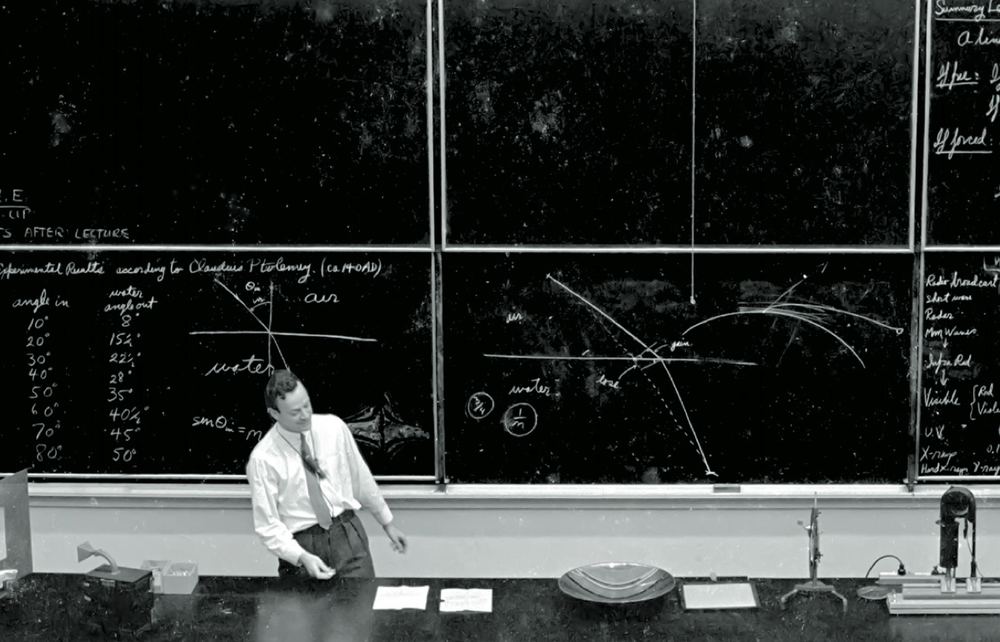 . E
TS AFTER LECTURE
Experimental Results according to Claudius Ptolemy. (ca 140 AD)
angle in
water
angle out
10° 8°
20° 15½°
30° 22½°
40° 28°
50° 35°
60° 40½°
70° 45°
80° 50°
air
water
sin θ = n
air
gain
lose
water
1/n
Summary
a lin
If free:
If forced
Radio broadcast
Short wave
Radar
MM Waves
Infra Red
Visible { Red
Viole
U.V.
X-rays 0.1
Hard X-rays γ-ray